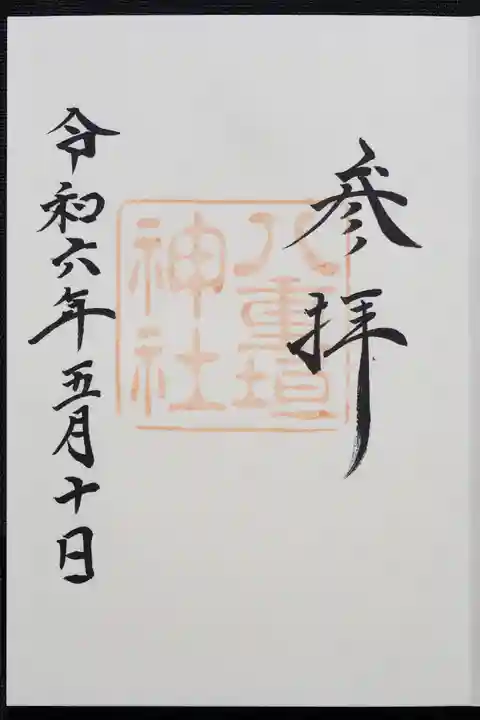 参拝
八重垣
神社
令和六年五月十日